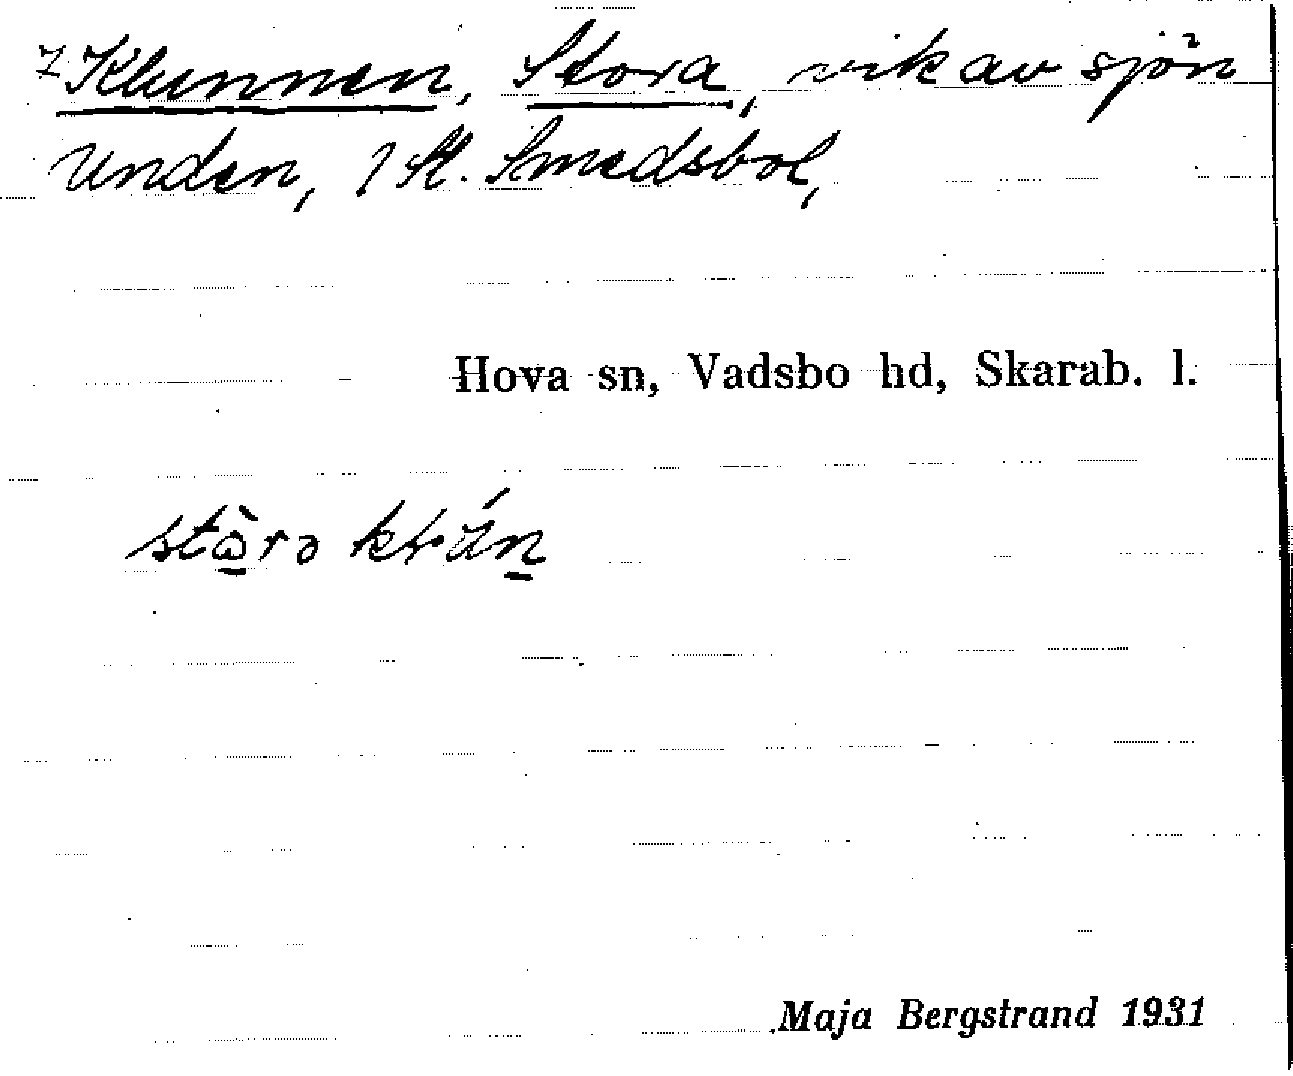 Klunnen, Stora, vik av sjön
Unden, 1 St. Smedsbol,
Hova sn, Vadsbo hd, Skarab. l.
Maja Bergstrand 1931